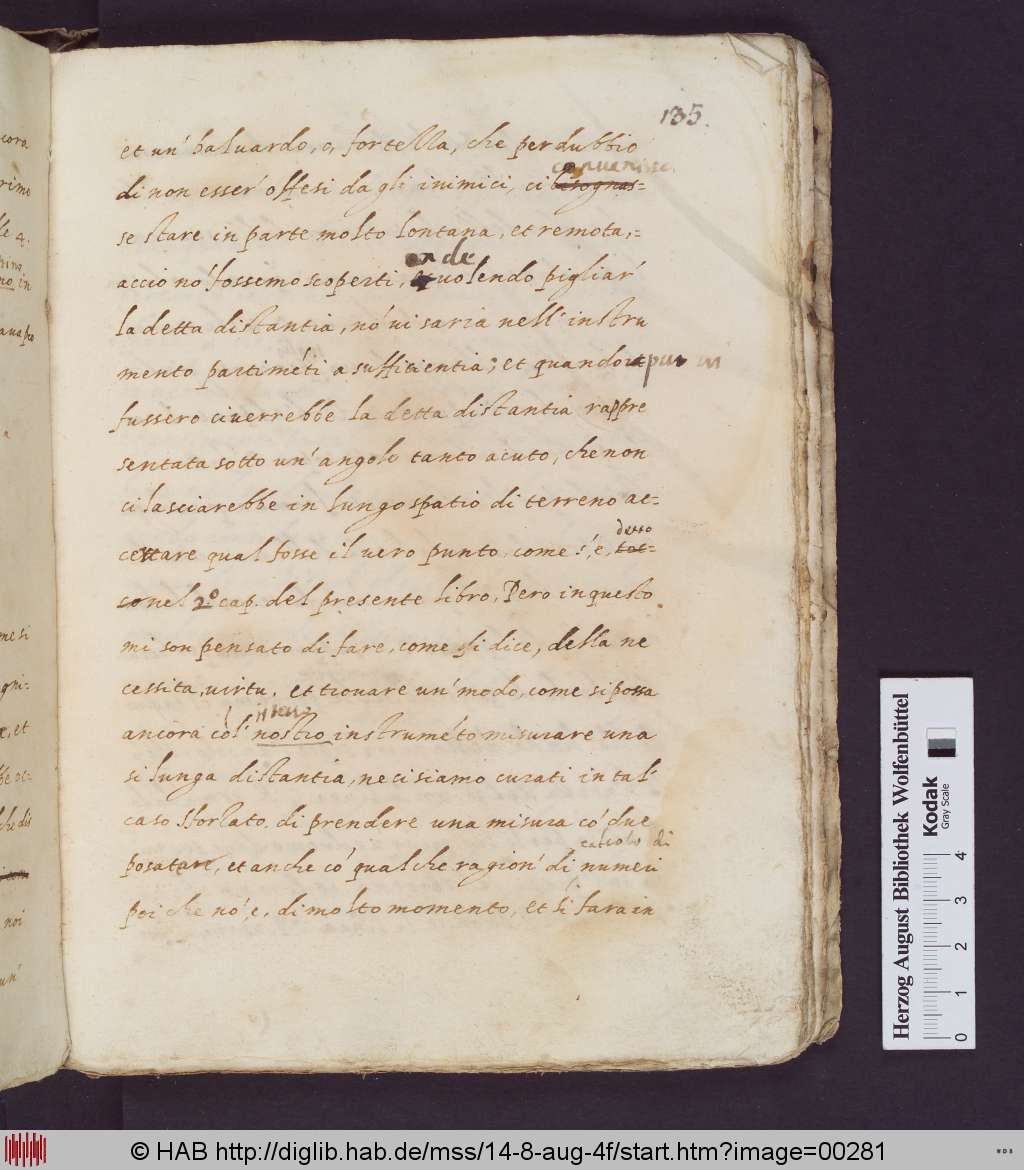 135.
et un' baluardo, o, fortezza, che per dubbio
di non esser' offesi da gli inimici, ci bisognas=
convenisse
se stare in parte molto lontana, et remota,=
accio nó fossemo scoperti, et volendo pigliar'
onde
la detta distantia, nó vi saria nell' instru
mento partiméti a sufficientia; et quando
pur vi
fussero ci verrebbe la detta distantia rappre
sentata sotto un' angolo tanto acuto, che non
ci lasciarebbe in lungo spatio di terreno ac=
certare qual fosse il vero punto, come s', e, toc=
detto
co nel 2º cap. del presente libro, Pero in questo
mi son pensato di fare, come si dice, della ne
cessita, virtu, et trovare un' modo, come si possa
ancora cól' nostro instruméto misurare una
si lunga distantia, ne ci siamo curati in tal'
caso sforzato di prendere una misura có due
posature, et anche có qualche ragion' di numeri
calcolo di
poi che nó, e, di molto momento, et si fara in
Herzog August Bibliothek Wolfenbüttel
Kodak
Gray Scale
0 1 2 3 4
© HAB http://diglib.hab.de/mss/14-8-aug-4f/start.htm?image=00281